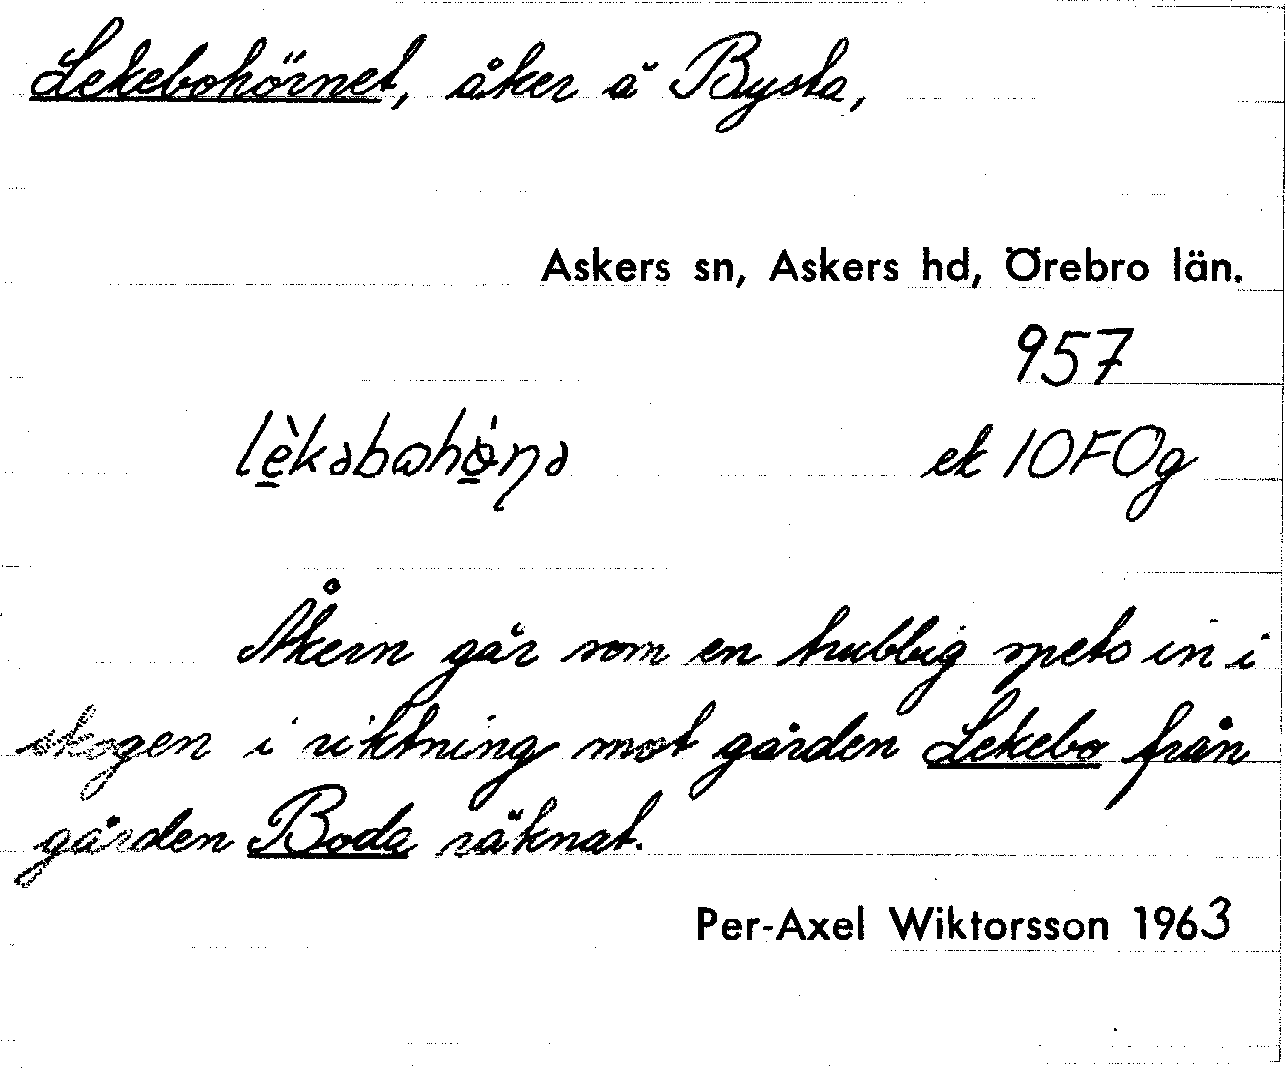 Lekebohörnet, åker å Bysta,
Askers sn, Askers hd, Örebro län.
957
ek 10F0g
Åkern går som en trubbig spets in i
skogen i riktning mot gården Lekebo från
gården Boda räknat.
Per-Axel Wiktorsson 1963